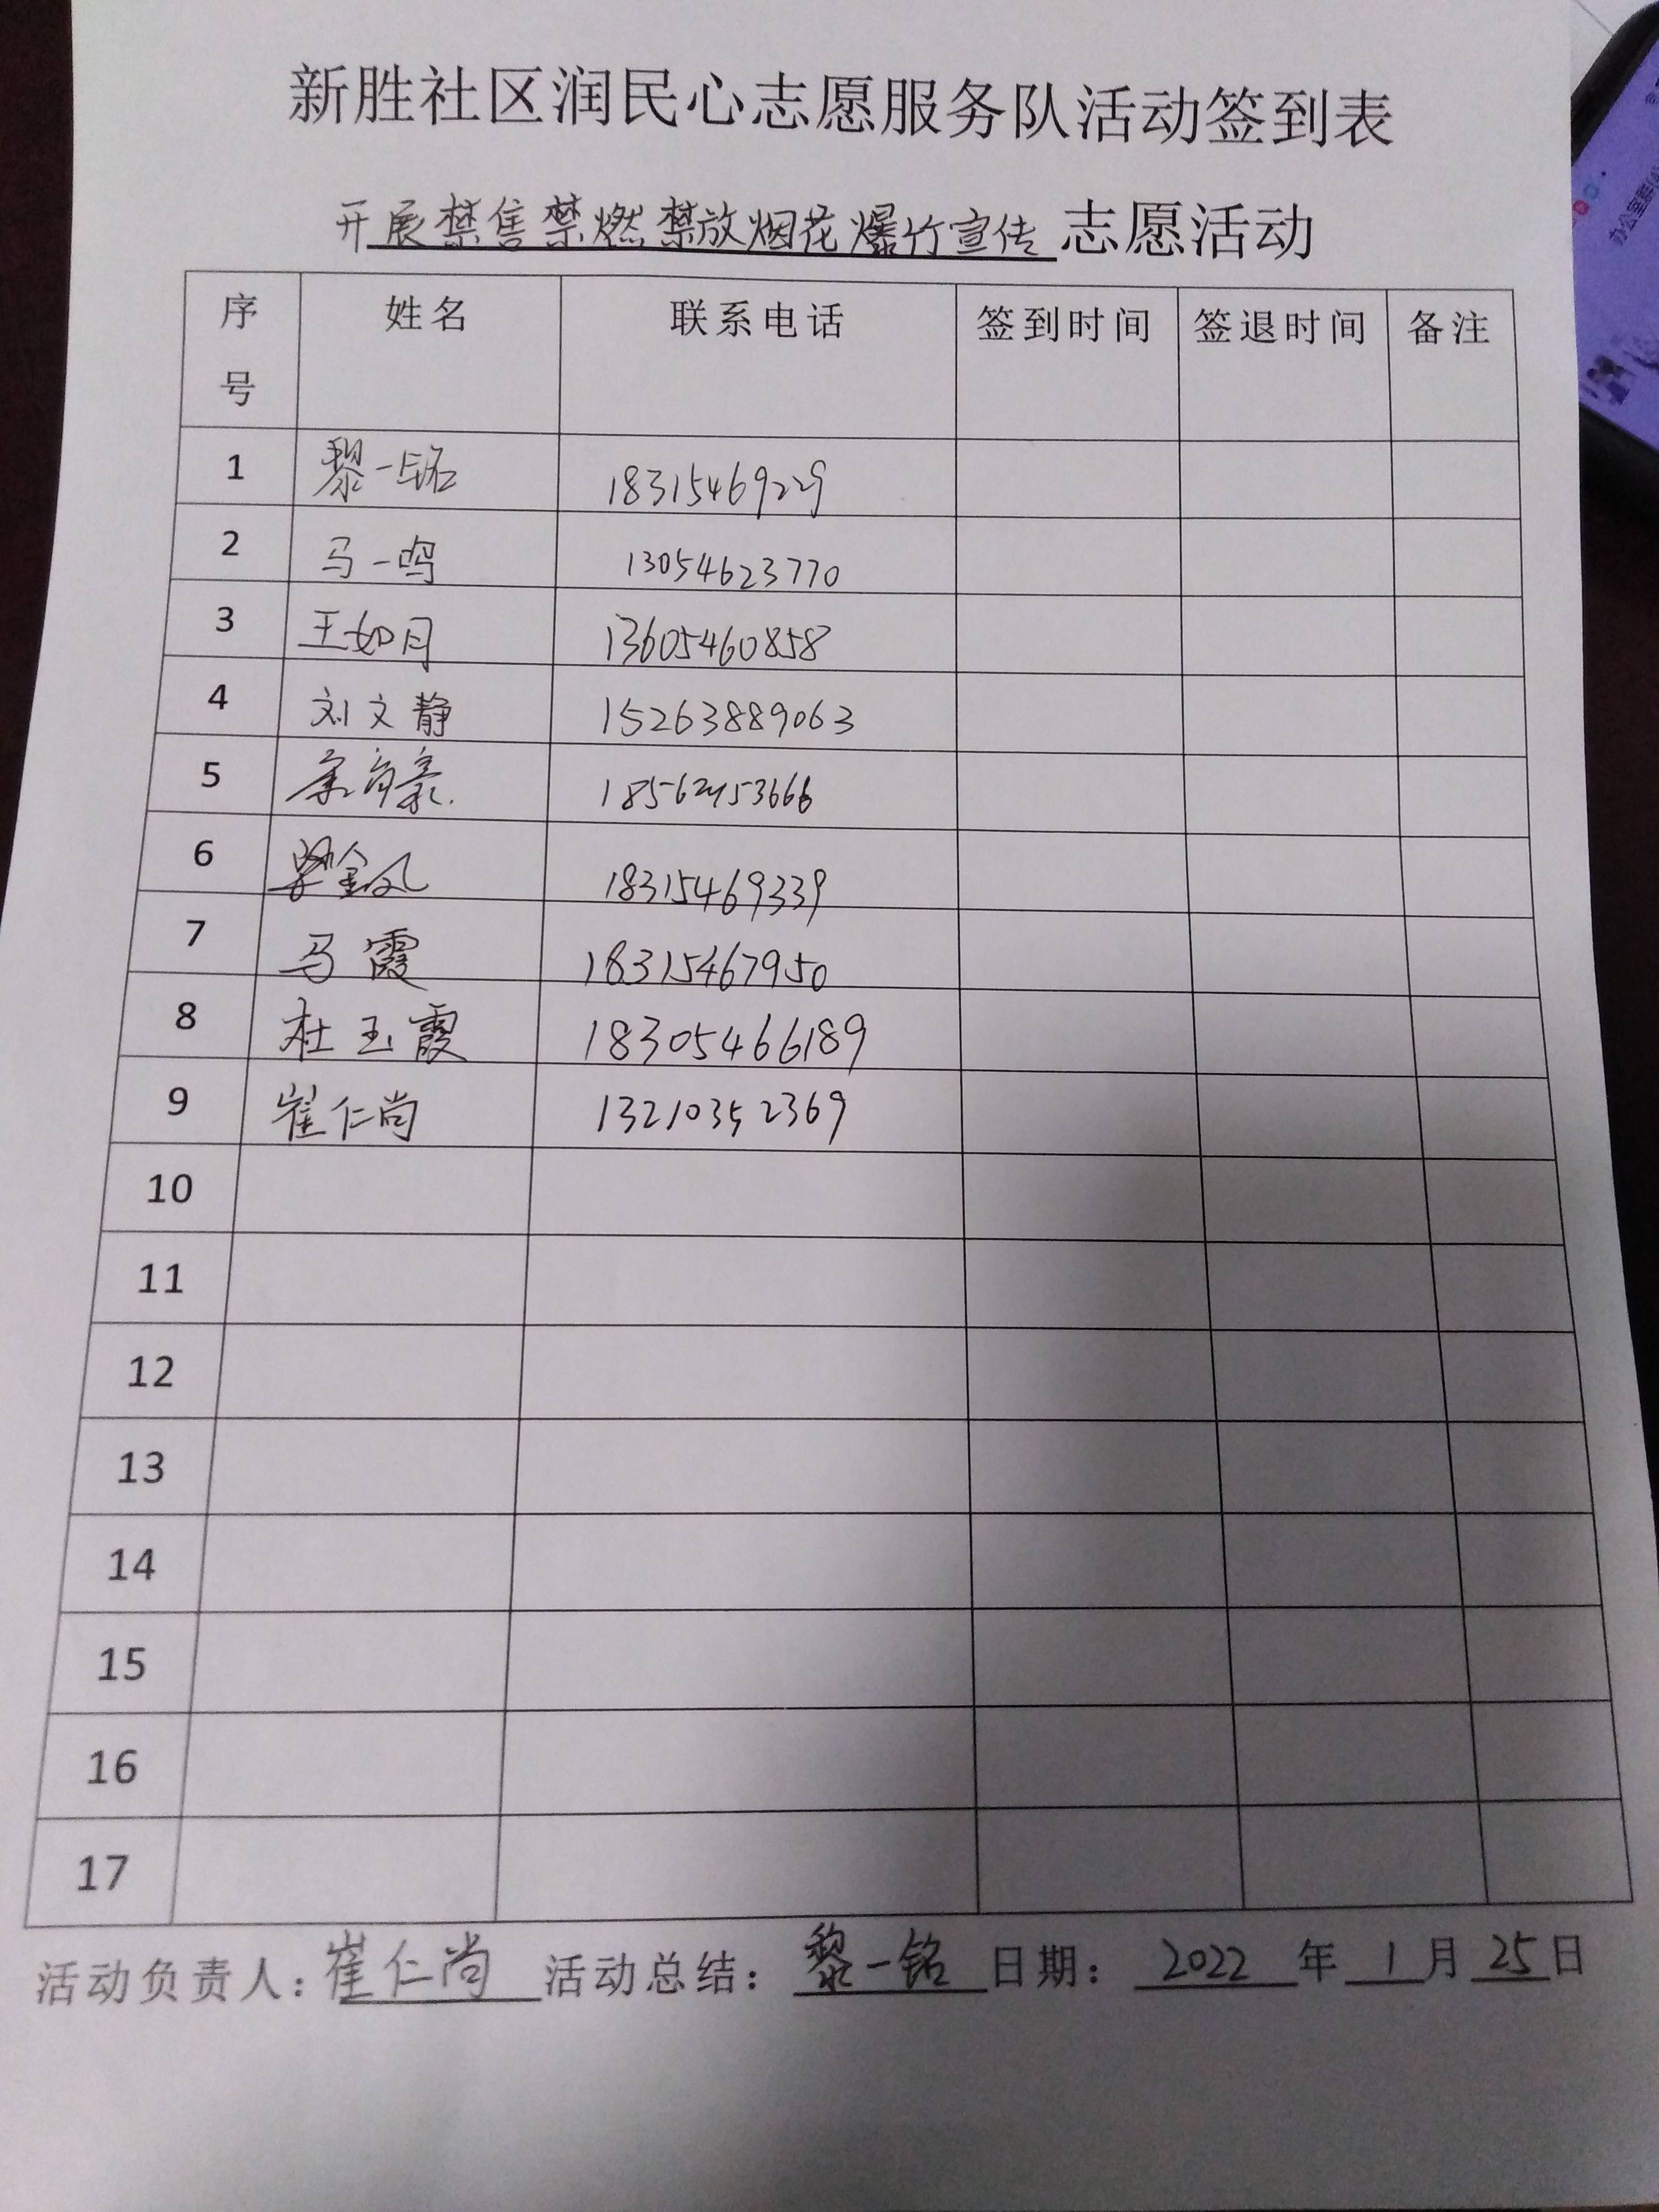 新胜社区润民心志愿服务队活动签到表
开展禁售禁燃禁放烟花爆竹宣传志愿活动
序号 姓名 联系电话 签到时间 签退时间 备注
1 黎一铭 18315469229
2 马一鸣 13054623770
3 王如月 13605460858
4 刘文静 15263889063
5
6 梁金凤 18315469339
7 马霞 18315467950
8 杜玉霞 18305466189
9 崔仁尚 13210352369
10
11
12
13
14
15
16
17
活动负责人：崔仁尚 活动总结：黎一铭 日期：2022年1月25日